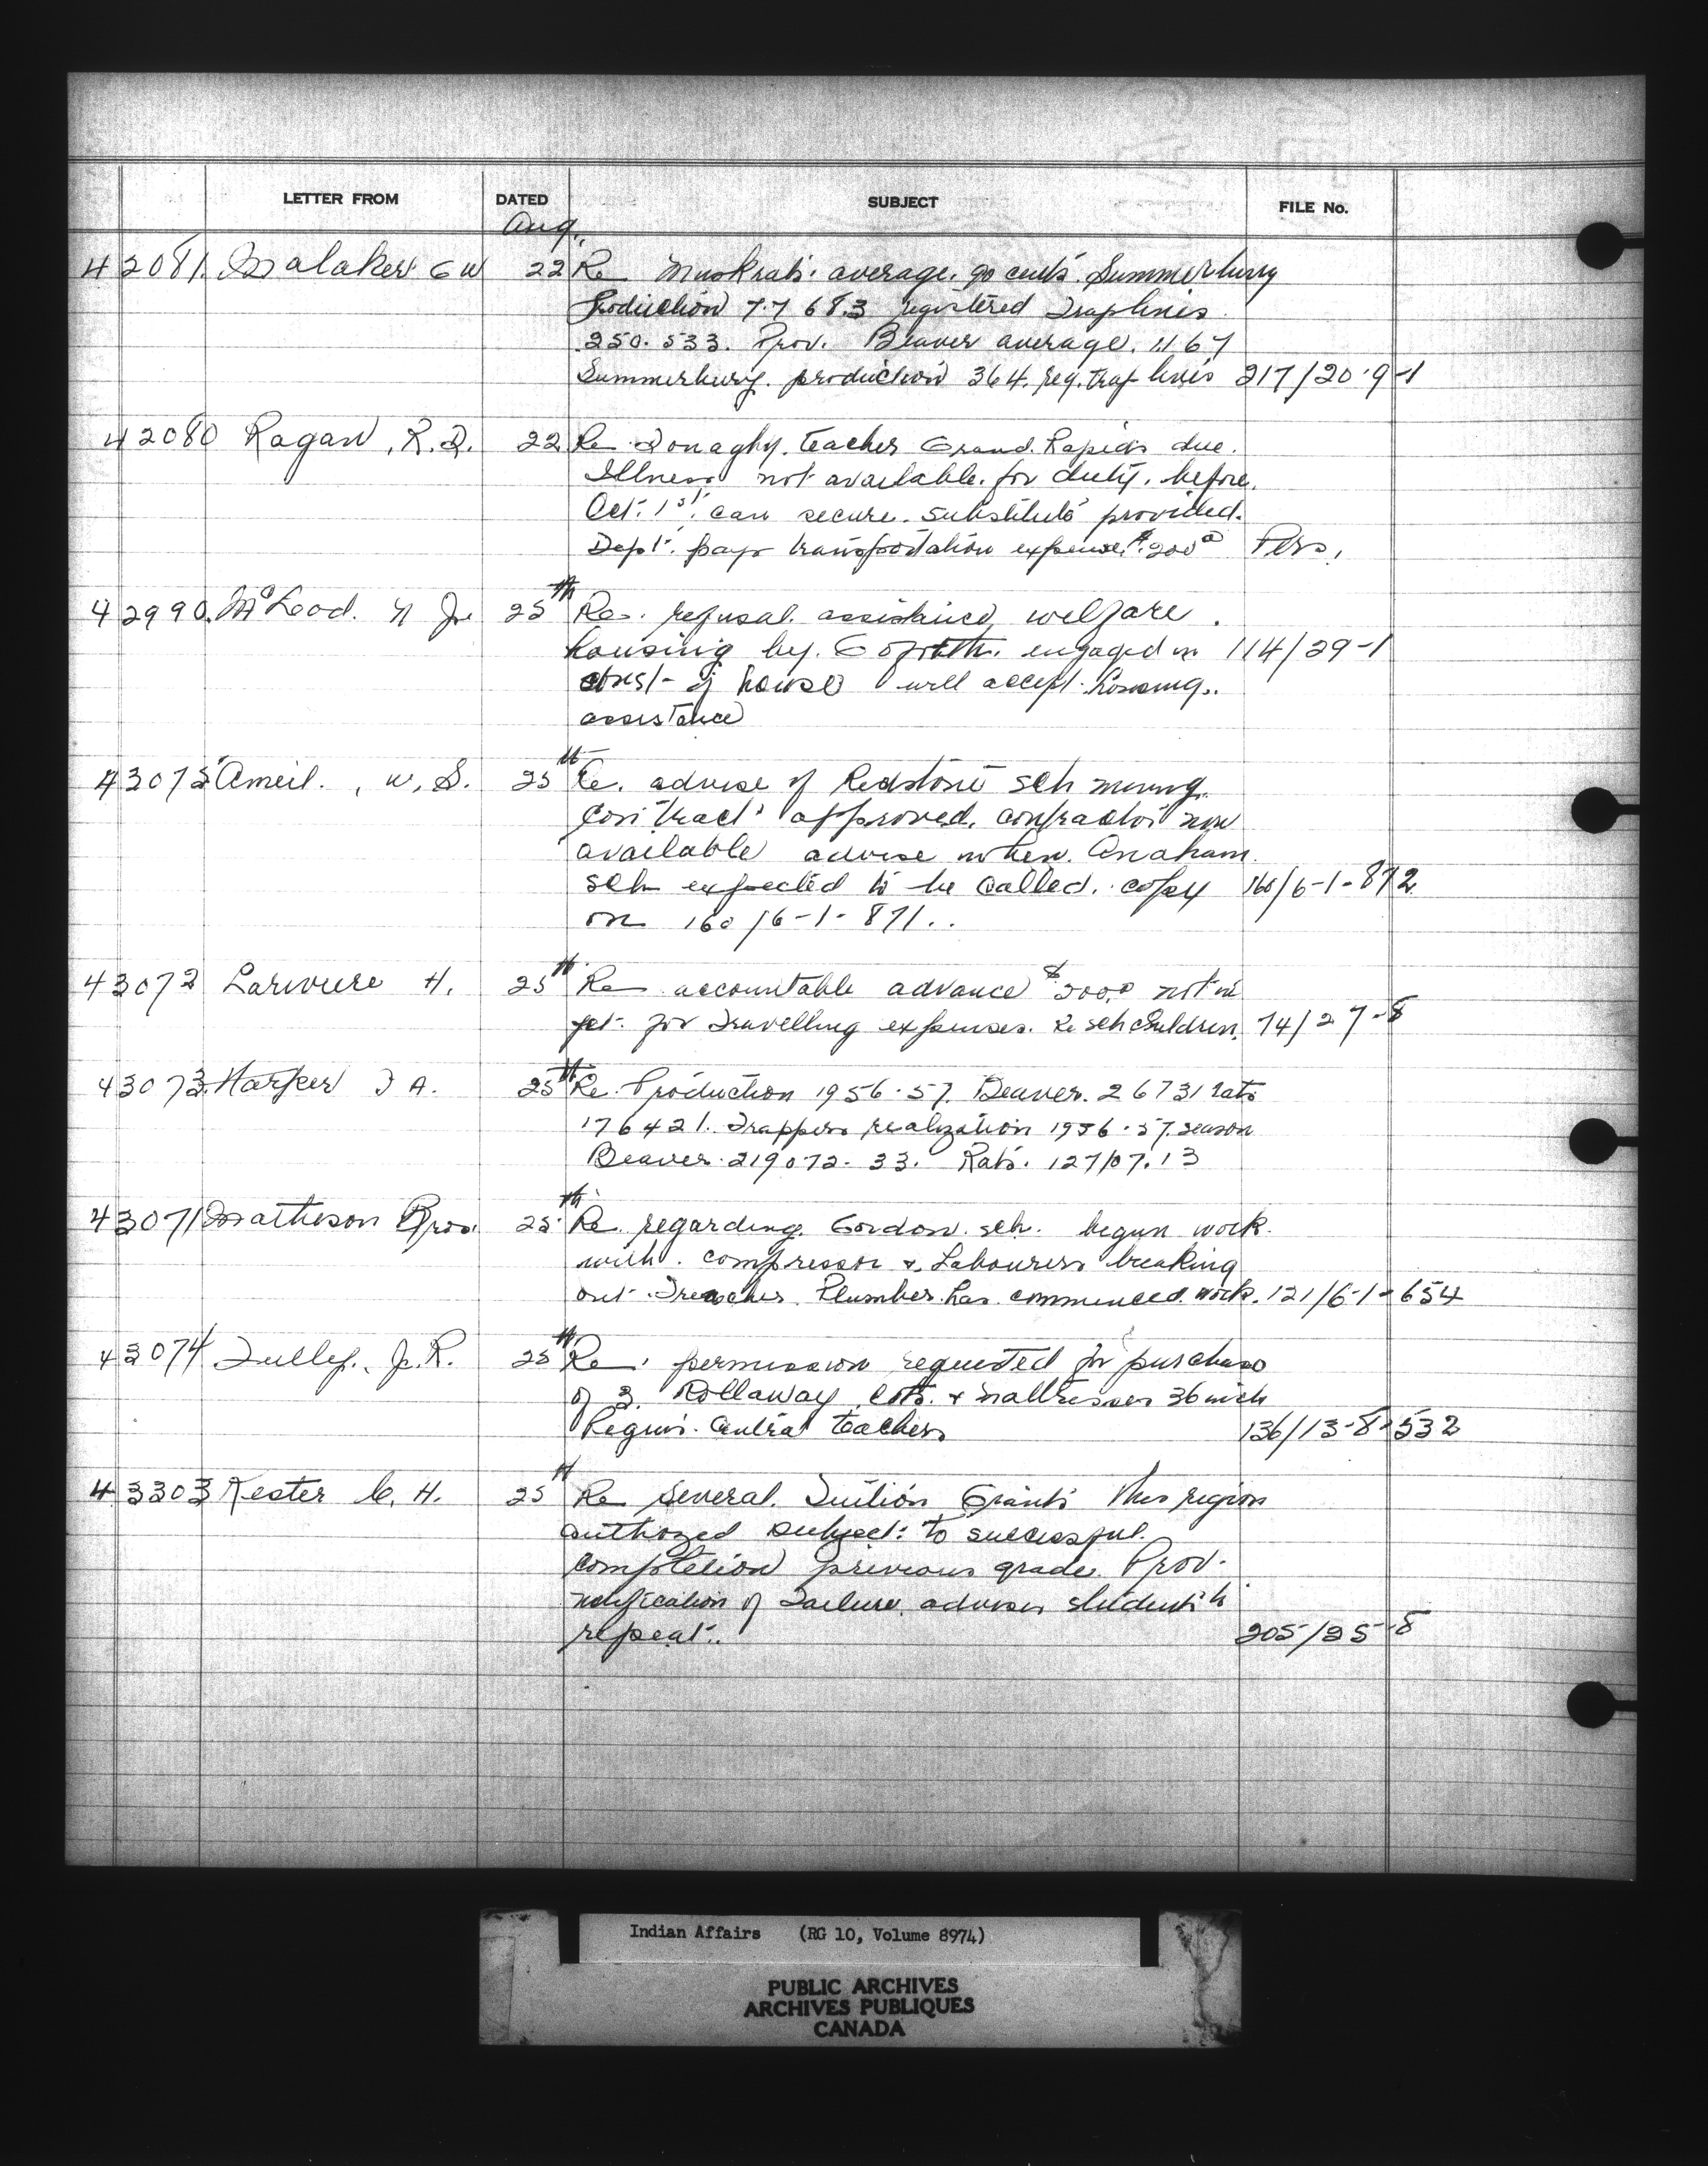 LETTER FROM DATED SUBJECT FILE No.
Aug.
42081 Malaker G W 22 Re Muskrats average 90 cents Summerbury
production 77683 registered Traplines
250.533. Prov. Beaver average. 11.67
Summerbury. production 364. reg. trap lines 217/20-9-1
42080 Ragan, R. D. 22 Re Donaghy. teacher Grand Rapids due.
Illness not available for duty. before.
Oct. 1st. can secure substitute provided.
Dept. pays transportation expense $200 Pers.
42990 McLeod. N Jr 25th Re. refusal assistance welfare.
housing by. engaged in 114/29-1
const. of house will accept housing.
assistance
43075 Ameil., W. S. 25th Re. advise of Redstone sch moving.
contract approved. contractor now
available advise when. Anaham.
sch expected to be called. copy 160/6-1-872
on 160/6-1-871..
43072 Lariviere H. 25th Re accountable advance $200.0 not in
yet. for Travelling expenses. Re sch children. 74/27-8
43073 Harper J A. 25th Re. Production 1956-57. Beaver. 26731 rats
176421. Trappers realization 1956-57. season
Beaver. 219072.33. Rats. 127107.13
43071 Matheson Bros. 25th Re. regarding. Gordon. sch. begun work.
with. compressor & Labourers breaking
out. Trenches. Plumber has commenced work. 121/6-1-654
43074 Tully., J. R. 25th Re. permission requested for purchase
of 3. Rollaway cots. & mattresses 36 inch
Requis. Central teachers 136/13-8-532
43303 Kester C. H. 25th Re Several Tuition Grants this region
authozed subject to successful.
completion previous grade. Prov.
notification of Failure. advises students to
repeat.. 205/25-8
Indian Affairs (RG 10, Volume 8974)
PUBLIC ARCHIVES
ARCHIVES PUBLIQUES
CANADA